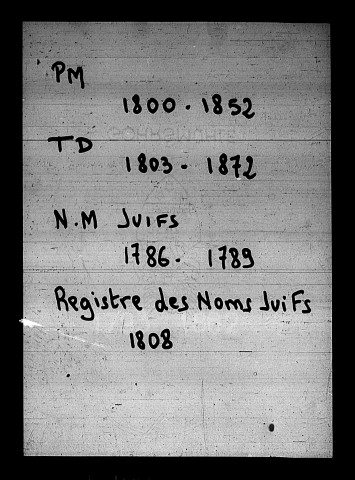 PM
1800 - 1852
TD
1803 - 1872
N.M Juifs
1786 - 1789
Registre des Noms Juifs
1808